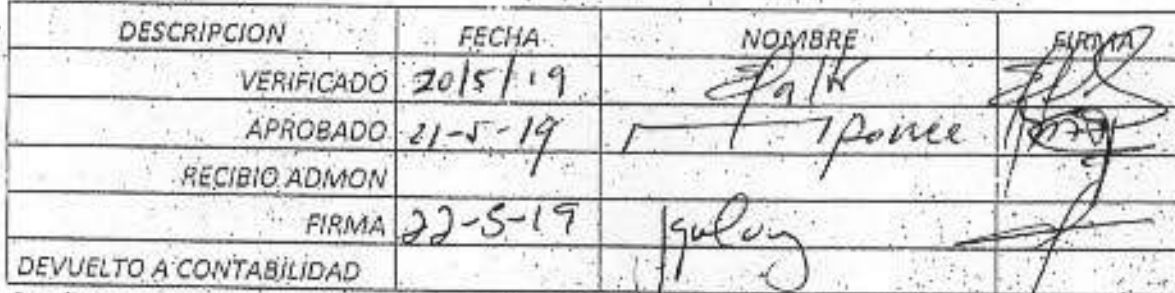 DESCRIPCION FECHA NOMBRE FIRMA
VERIFICADO 20/5/19
APROBADO 21-5-19 Ponce
RECIBIO ADMON
FIRMA 22-5-19
DEVUELTO A CONTABILIDAD